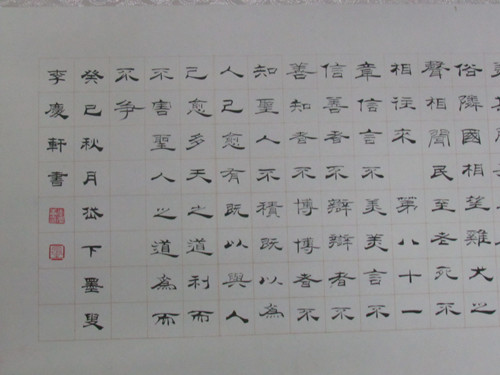 俗隣國相望雞犬之
聲相聞民至老死不
相往來 第八十一
章信言不美美言不
信善者不辯辯者不
善知者不博博者不
知聖人不積既以為
人己愈有既以與人
己愈多天之道利而
不害聖人之道為而
不爭
癸巳秋月岱下墨叟
李慶軒書